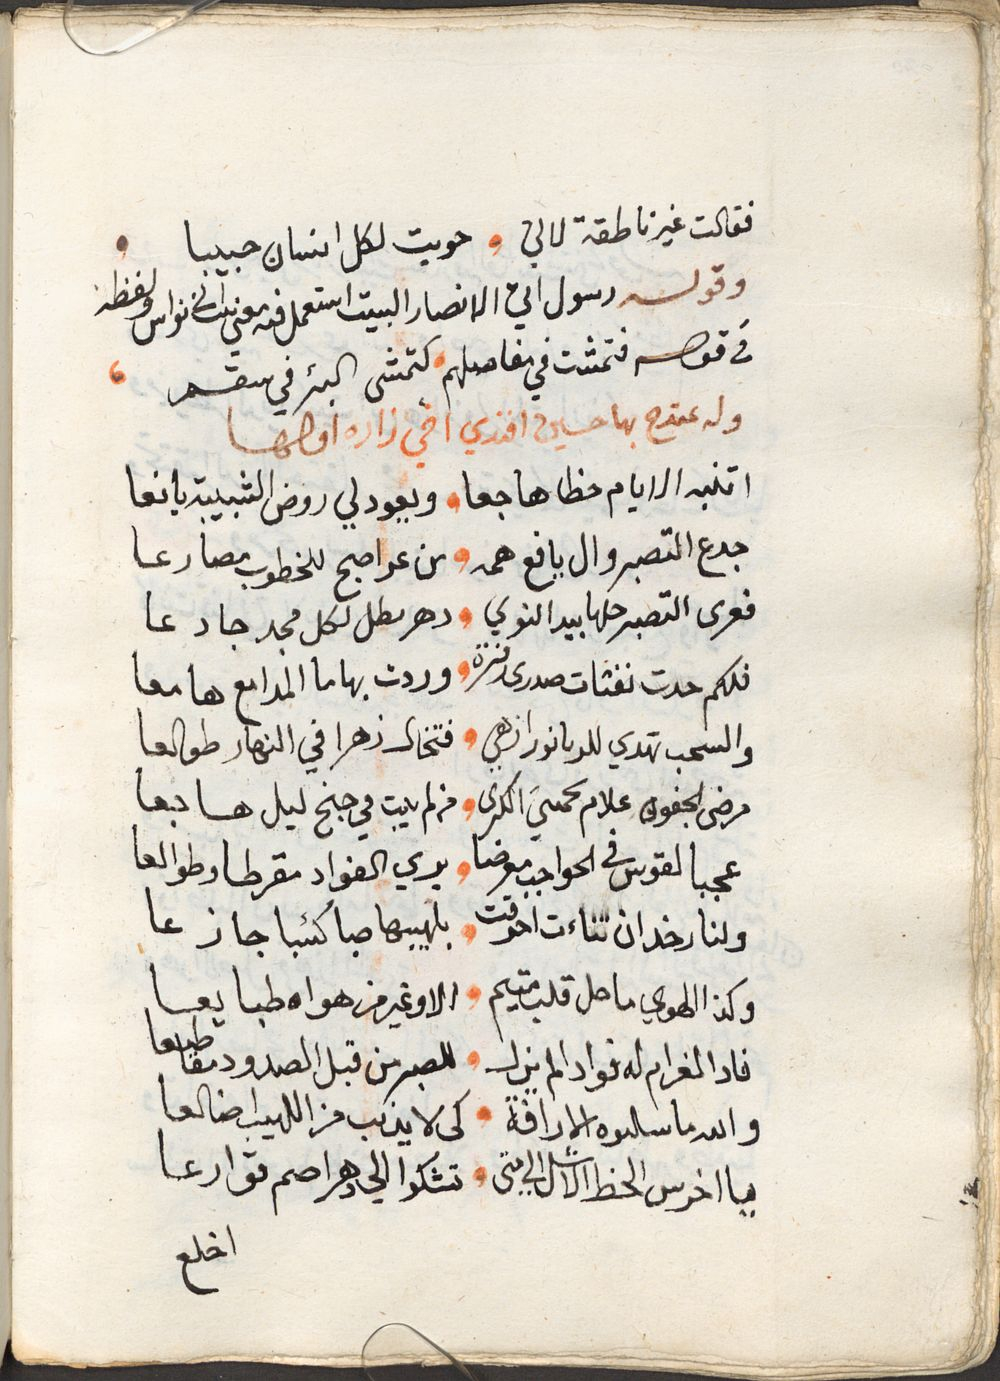 فقالت غير ناطقة لالئ ، حويت لكل انسان حبيبا
وقوله رسول الى الانصار البيت استعمل فيه معنى بيت ابي نواس ولفظه
في قوله فتمشت في مفاصلهم ، كتمشى البرء في سقم
وله يمتدح بها حسين افندي اخي زاده اولها
اتنبه الايام حظا هاجعا ، ويعود لي روض الشبيبة يانعا
جدع التصبر وال يافع همه ، من عراصبح للخطوب مصارعا
فعرى التصبر حلها بيد النوي ، دهر مطل لكل مجد جادعا
فلكم حدت نفثات صدرى زفرة ، وردت بها ما المدامع هامعا
والسحب تهدي للربا نورا زهى ، فتخال زهرا في النهار طوالعا
مرضى الجفون علام تحمي الكرى ، من لم يبت في جنح ليل هاجعا
عجبا لقوس في الحواجب معرضا ، يرمي الفواد مقرطا وطوالعا
ولنار خد ان تناءت احرقت ، بلهيبها صبا كئبا جازعا
وكذا الهوى ما حل قلب متيم ، الا وغير من هواه طبايعا
فاد الغرام له فواد لم يزل ، للصبر من قبل الصدود مقاطعا
والله ما سلبوه الا رافة ، كى لا يذيب من اللهيب اضالعا
يا اخرس الحظ الاشل الى متى ، تشكوا الى دهر اصم قوارعا
اخلع